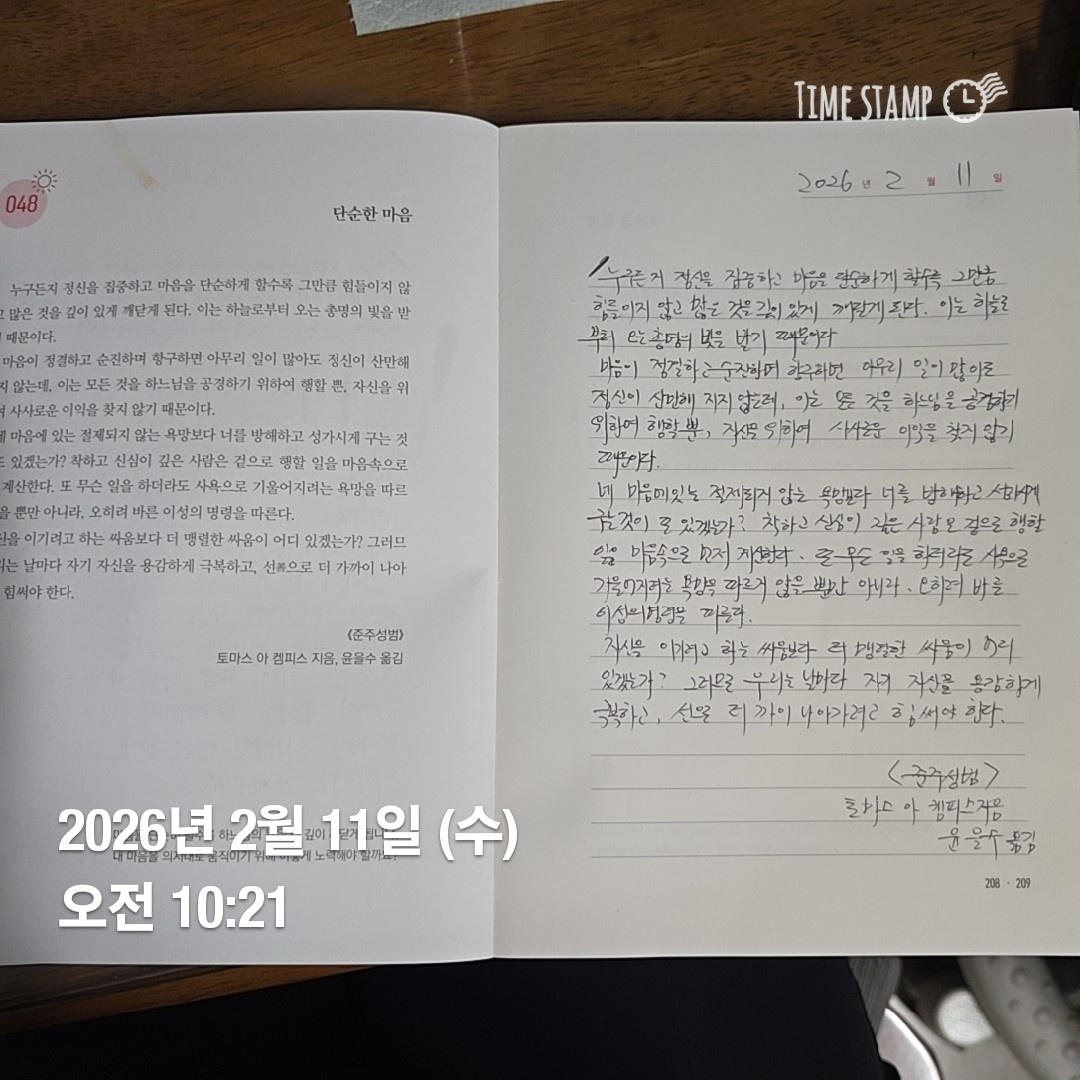 TIME STAMP
048
단순한 마음
누구든지 정신을 집중하고 마음을 단순하게 할수록 그만큼 힘들이지 않
고 많은 것을 깊이 있게 깨닫게 된다. 이는 하늘로부터 오는 총명의 빛을 받
기 때문이다.
마음이 정결하고 순진하며 항구하면 아무리 일이 많아도 정신이 산만해
지지 않는데, 이는 모든 것을 하느님을 공경하기 위하여 행할 뿐, 자신을 위
여 사사로운 이익을 찾지 않기 때문이다.
네 마음에 있는 절제되지 않는 욕망보다 너를 방해하고 성가시게 구는 것
또 있겠는가? 착하고 신심이 깊은 사람은 겉으로 행할 일을 마음속으로
계산한다. 또 무슨 일을 하더라도 사욕으로 기울어지려는 욕망을 따르
을 뿐만 아니라, 오히려 바른 이성의 명령을 따른다.
신을 이기려고 하는 싸움보다 더 맹렬한 싸움이 어디 있겠는가? 그러므
리는 날마다 자기 자신을 용감하게 극복하고, 선善으로 더 가까이 나아
힘써야 한다.
《준주성범》
토마스 아 켐피스 지음, 윤을수 옮김
내 마음을 의지대로 움직이기 위해 어떻게 노력해야 할까요?
2026년 2월 11일 (수)
오전 10:21
2026 년 2 월 11 일
누구든지 정신을 집중하고 마음을 단순하게 할수록 그만큼
힘들이지 않고 많은 것을 깊이 있게 깨닫게 된다. 이는 하늘로
부터 오는 총명의 빛을 받기 때문이다
마음이 정결하고 순진하며 항구하면 아무리 일이 많아도
정신이 산만해 지지 않는데, 이는 모든 것을 하느님을 공경하기
위하여 행할 뿐, 자신을 위하여 사사로운 이익을 찾지 않기
때문이다.
네 마음에 있는 절제되지 않는 욕망보다 너를 방해하고 성가시게
구는 것이 또 있겠는가? 착하고 신심이 깊은 사람은 겉으로 행할
일을 마음속으로 먼저 계산한다. 또 무슨 일을 하더라도 사욕으로
기울어지려는 욕망을 따르지 않을 뿐만 아니라. 오히려 바른
이성의 명령을 따른다.
자신을 이기려고 하는 싸움보다 더 맹렬한 싸움이 어디
있겠는가? 그러므로 우리는 날마다 자기 자신을 용감하게
극복하고, 선으로 더 가까이 나아가려고 힘써야 한다.
<준주성범>
토마스 아 켐피스 지음
윤을수 옮김
208 · 209